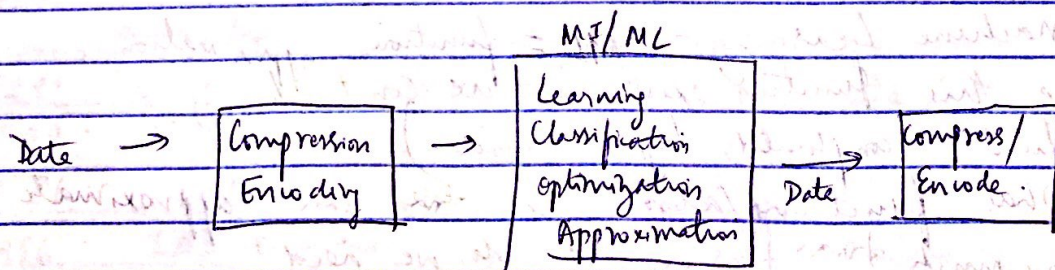 MI/ML
Date → Compression Encoding → Learning Classification optimization Approximation → Date Compress/ Encode.